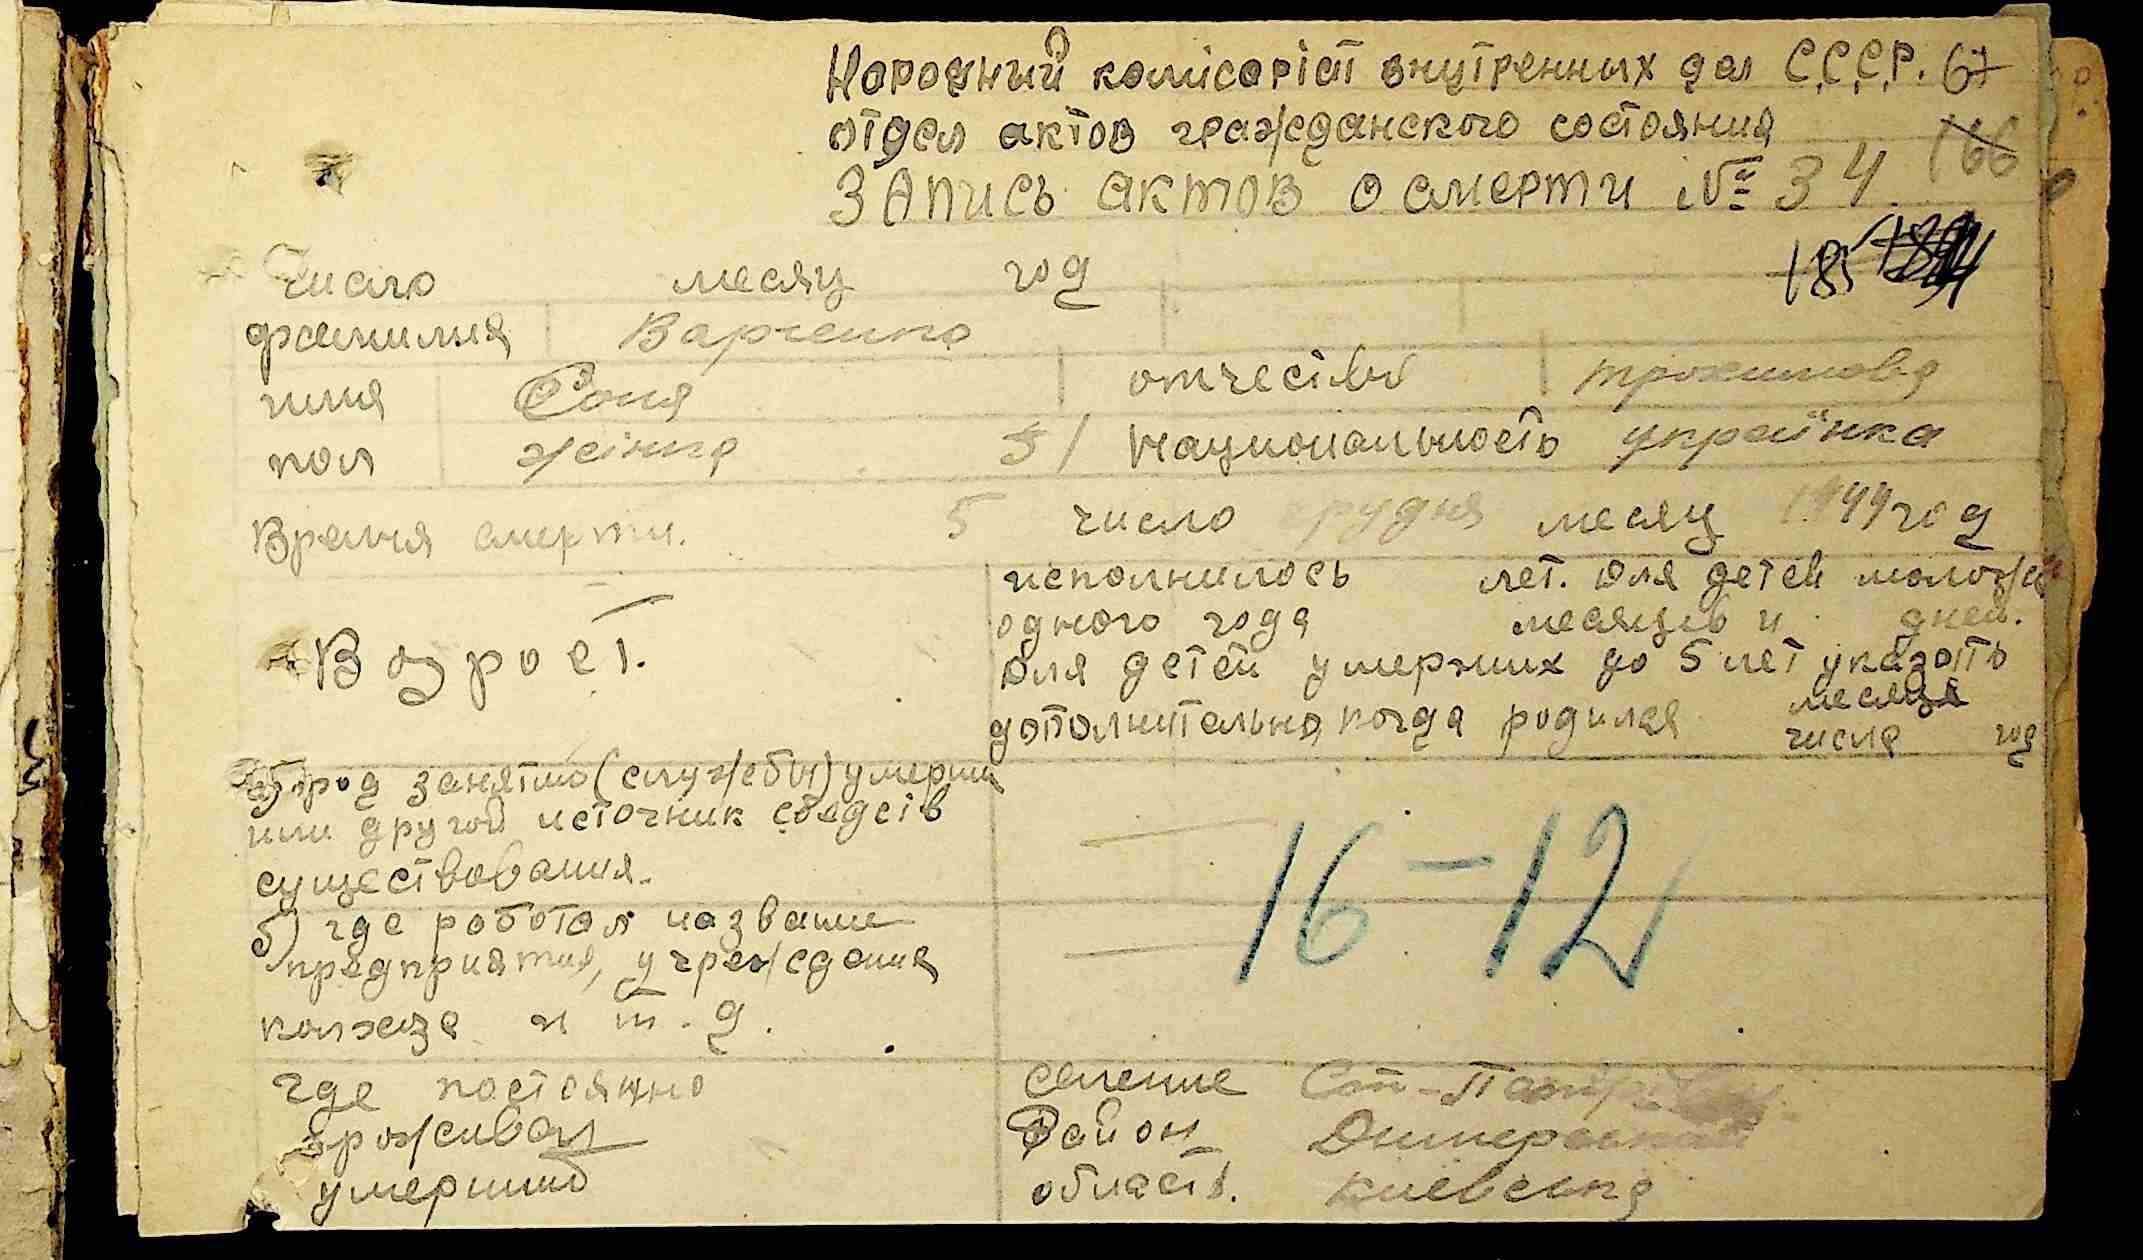 Народний комісаріат внутренных дел С.С.С.Р. 67
отдел актов гражданского состояния
Запись актов о смерти № 34 166
185
Число месяц год
фамилия Варченко
имя Соня отчество трохимовна
пол жінка 3/ национальность украïнка
Время смерти. 5 число грудня месяц 1944 год
исполнилось лет. Для детей моложе
одного года месяцев и дней.
Возрост.
Для детей умерших до 5 лет указать
дополнительно, когда родился месяца
числа год
а) род занятий (службы) умерши
или другой источник средств
существования.
16-12
б) где работал название
предприятия, учреждения
колхоза и т.д.
где постоянно селение Ст-Петр
проживал Район Димерский
умерший область. Киевская